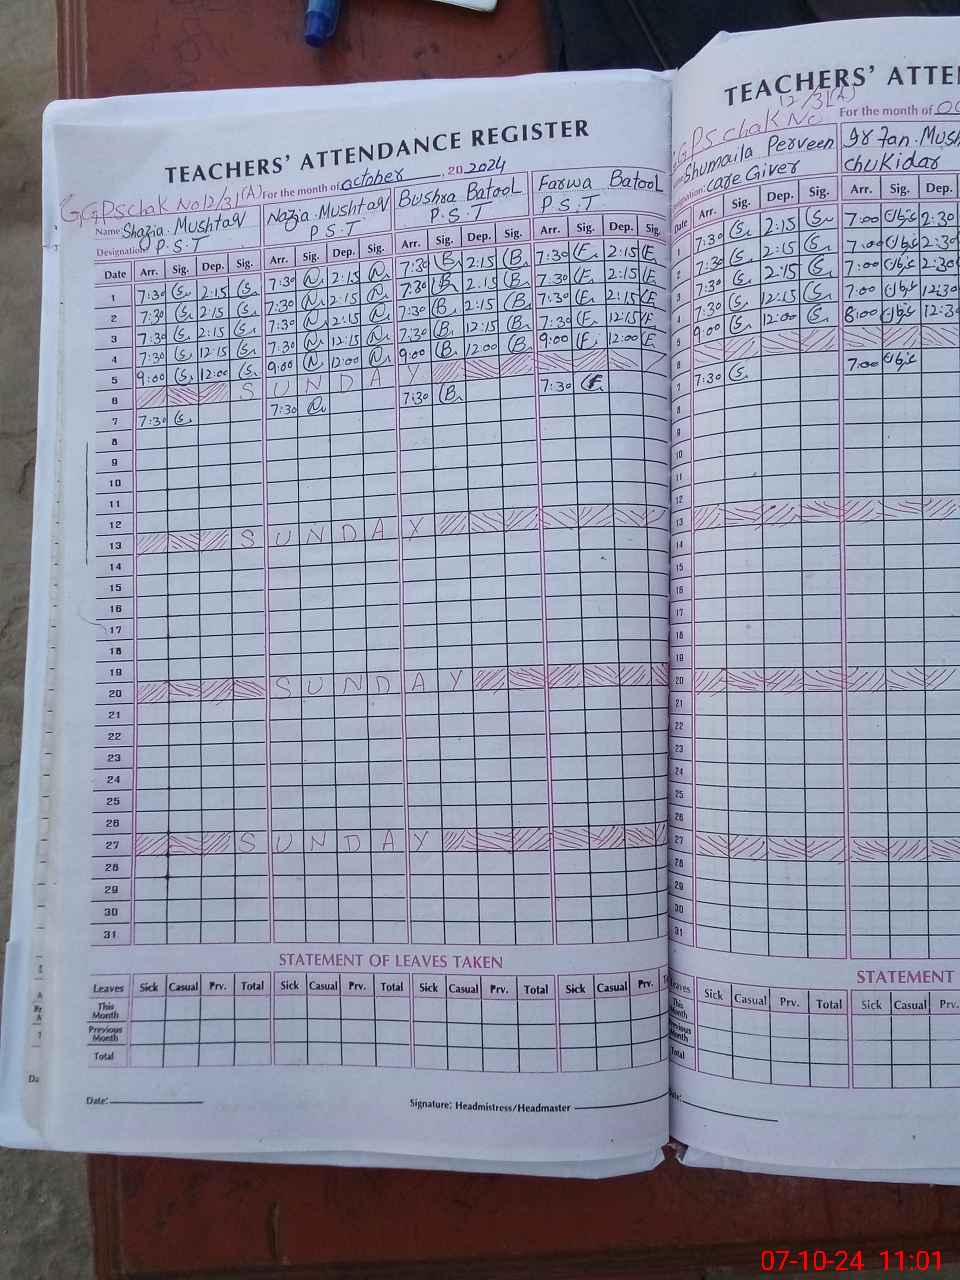 TEACHERS' ATTENDANCE REGISTER
GGPS chak No 12/31(A) For the month of october, 20 2024
Name: Shazia Mushtaq Nazia Mushtaq Bushra Batool Farwa Batool
Designation: P.S.T P.S.T P.S.T P.S.T
Date Arr. Sig. Dep. Sig. Arr. Sig. Dep. Sig. Arr. Sig. Dep. Sig. Arr. Sig. Dep. Sig.
1 7:30 2:15 7:30 2:15 7:30 2:15 7:30 2:15
2 7:30 2:15 7:30 2:15 7:30 2:15 7:30 2:15
3 7:30 2:15 7:30 2:15 7:30 2:15 7:30 2:15
4 7:30 12:15 7:30 12:15 7:30 12:15 7:30 12:15
5 9:00 12:00 9:00 12:00 9:00 12:00 9:00 12:00
6 SUNDAY
7 7:30 7:30 7:30 7:30
8
9
10
11
12
13 SUNDAY
14
15
16
17
18
19
20 SUNDAY
21
22
23
24
25
26
27 SUNDAY
28
29
30
31
STATEMENT OF LEAVES TAKEN
Leaves Sick Casual Prv. Total Sick Casual Prv. Total Sick Casual Prv. Total Sick Casual Prv.
This Month
Previous Month
Total
Date: Signature: Headmistress/Headmaster
TEACHERS' ATTE
GGPS chak No 12/31(A) For the month of
Shumaila Perveen
care Giver chukidar
Date Arr. Sig. Dep. Sig. Arr. Sig. Dep.
1 7:30 2:15 7:00 2:30
2 7:30 2:15 7:00 2:30
3 7:30 2:15 7:00 2:30
4 7:30 12:15 7:00 12:30
5 9:00 12:00 8:00 12:3
6
7 7:30 7:00
8
9
10
11
12
13
14
15
16
17
18
19
20
21
22
23
24
25
26
27
28
29
30
31
STATEMENT
Leaves Sick Casual Prv. Total Sick Casual Prv.
This Month
Previous Month
Total
07-10-24 11:01